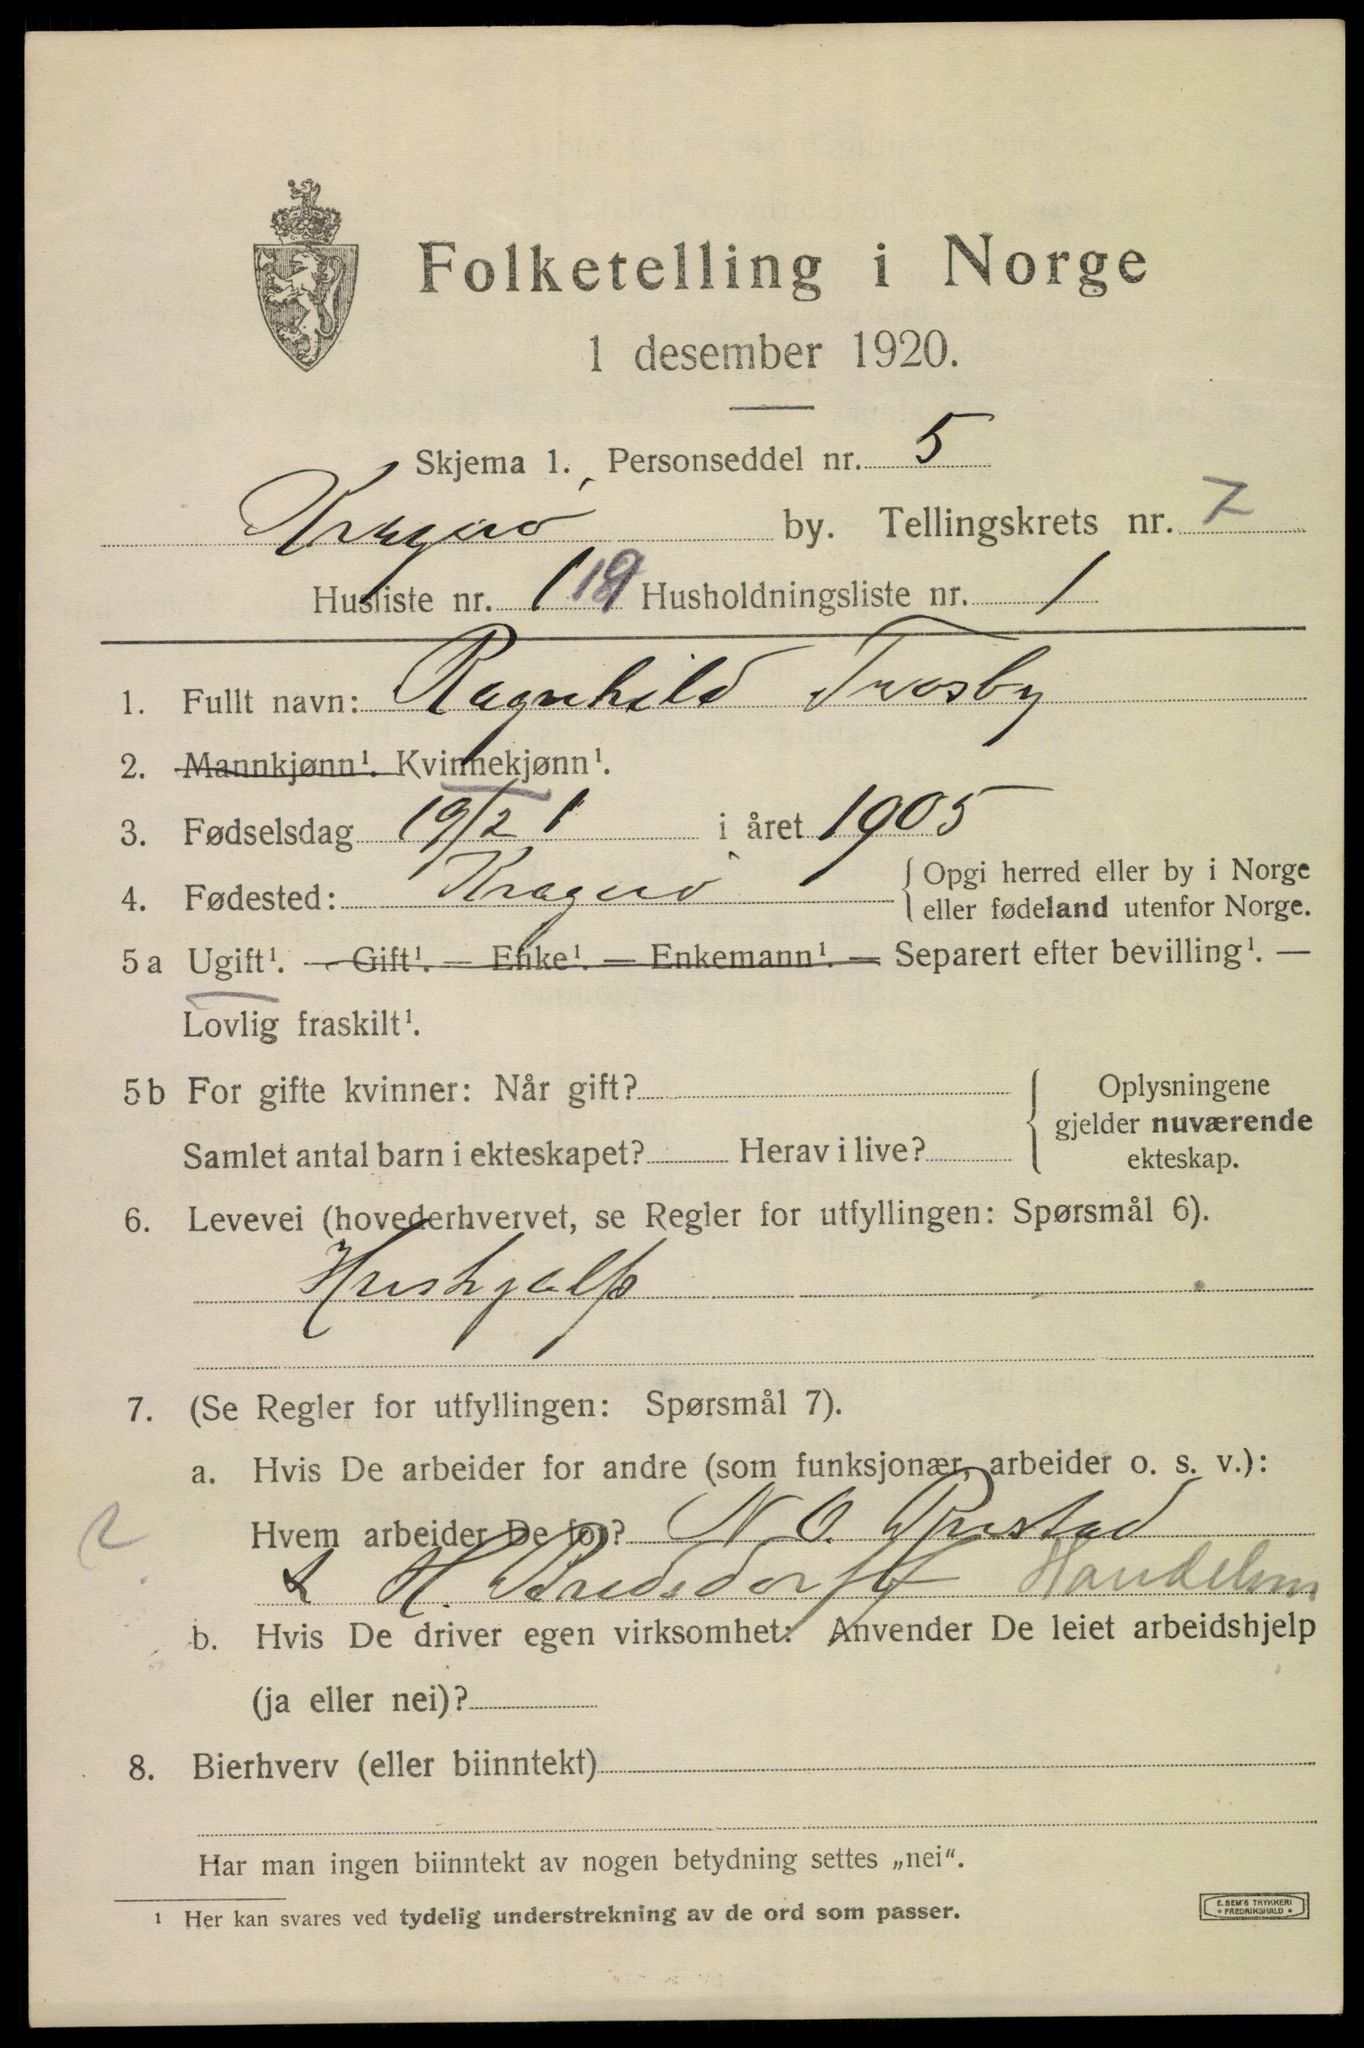 Folketelling i Norge
1 desember 1920.
Skjema 1. Personseddel nr. 5
Kragerø by. Tellingskrets nr. 7
Husliste nr. 1 19 Husholdningsliste nr. 1
1. Fullt navn: Ragnhild Trosby
2. Mannkjønn¹. Kvinnekjønn¹.
3. Fødselsdag 19/2 1 i året 1905
4. Fødested: Kragerø { Opgi herred eller by i Norge
eller fødeland utenfor Norge.
5 a Ugift¹. — Gift¹. — Enke¹. — Enkemann¹. — Separert efter bevilling¹. —
Lovlig fraskilt¹.
5 b For gifte kvinner: Når gift? { Oplysningene
gjelder nuværende
Samlet antal barn i ekteskapet? Herav i live? ekteskap.
6. Levevei (hovederhvervet, se Regler for utfyllingen: Spørsmål 6).
Hushjælp
7. (Se Regler for utfyllingen: Spørsmål 7).
a. Hvis De arbeider for andre (som funksjonær, arbeider o. s. v.):
2 Hvem arbeider De for? N. O.
& H. Bredsdorff
b. Hvis De driver egen virksomhet: Anvender De leiet arbeidshjelp
(ja eller nei)?
8. Bierhverv (eller biinntekt)
Har man ingen biinntekt av nogen betydning settes „nei“.
¹ Her kan svares ved tydelig understrekning av de ord som passer.
E. SEM'S TRYKKERI
* FREDRIKSHALD *